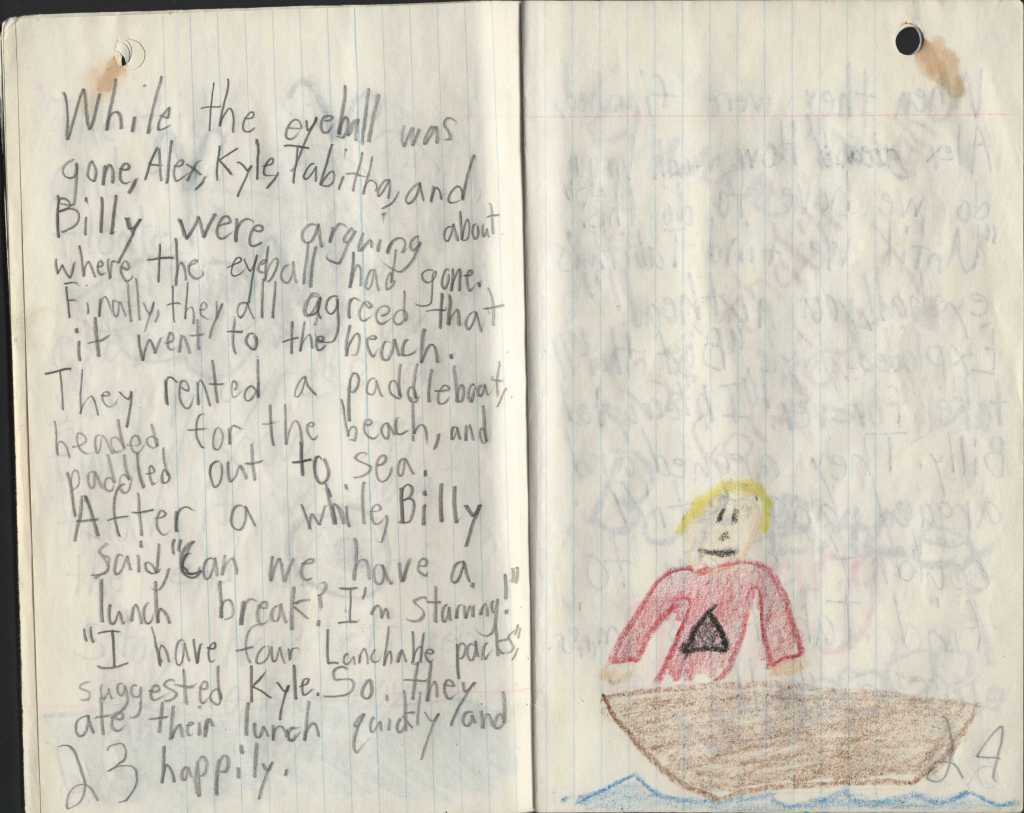 While the eyeball was
gone, Alex, Kyle, Tabitha, and
Billy were arguing about
where the eyeball had gone.
Finally, they all agreed that
it went to the beach.
They rented a paddleboat,
headed for the beach, and
paddled out to sea.
After a while, Billy
said, "Can we have a
lunch break? I'm starving!"
"I have four Lunchable packs,"
suggested Kyle. So, they
ate their lunch quickly and
happily.
23
24